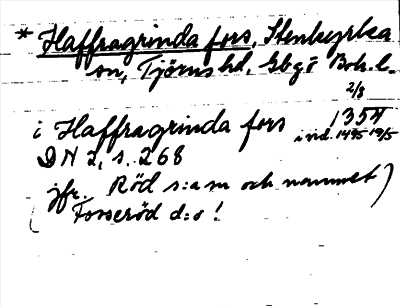 * Haffragrinda fors, Stenkyrka
sn, Tjörns hd, Gbg o Boh. l.
2/8
i Haffragrinda fors 1354
ind. 1495 19/5
DN 2, s. 268
(jfr. Röd s:a sn och namnet
Forseröd d:o!)